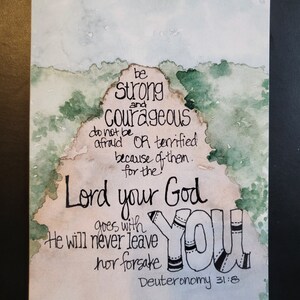 be
strong
and
courageous
do not be
afraid OR terrified
because of them.
for the
Lord your God
goes with YOU.
He will never leave
nor forsake
Deuteronomy 31:8